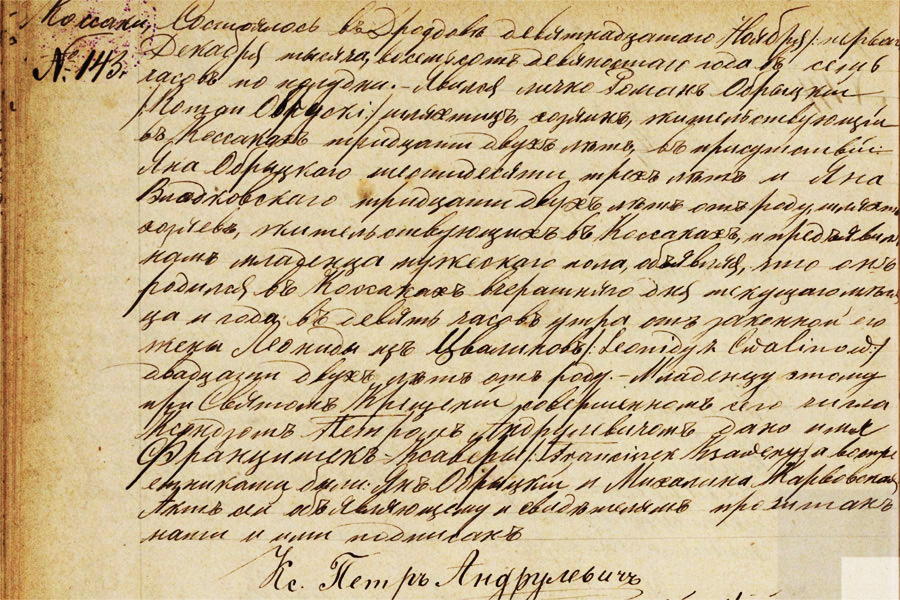 Коссаки
№ 143.
Состоялось въ Дроздовѣ девятнадцатаго Ноября /: перваго
Декабря тысяча восемьсотъ девяностаго года въ семь
часовъ по полудни. – Явился лично Романъ Обрыцкій
/: Roman Obrycki :/ шляхтичъ, хозяинъ, жительствующій
въ Коссакахъ тридцати двухъ лѣтъ, въ присутствіи:
Яна Обрыцкаго шестидесяти трехъ лѣтъ и Яна
тридцати двухъ лѣтъ отъ роду, шляхтъ
жительствующихъ въ Коссакахъ, и предъявилъ
намъ младенца мужескаго пола, объявляя, что онъ
родился въ Коссакахъ вчерашняго дня текущаго мѣся
ца и года, въ девять часовъ утра отъ законной его
жены Леониды изъ Цвалиновъ /: Leonidy z Cwalinów :/
двадцати двухъ лѣтъ отъ роду. – Младенцу этому
при Святомъ Крещеніи совершенномъ сего числа
Ксендзомъ Петромъ Андрулевичемъ дано имя
Францишекъ-Ксаверы /: Franciszek Ksawery :/ а воспрі
емниками были: Янъ Обрыцкій и Михалина Карвовская
Актъ сей объявляющему и свидѣтелямъ прочитанъ
нами и ими подписанъ
Кс. Петръ Андрулевичъ